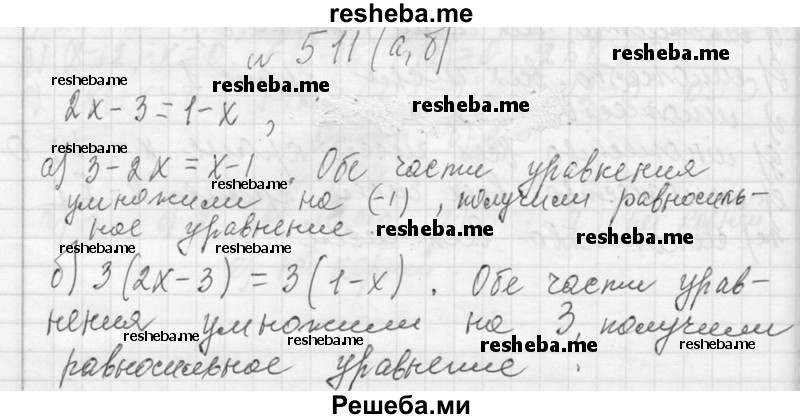 resheba.me
№ 511 (а, б)
resheba.me resheba.me resheba.me
2x - 3 = 1 - x,
resheba.me
а) 3 - 2x = x - 1. Обе части уравнения
resheba.me resheba.me
умножили на (-1), получили равносиль-
ное уравнение.
resheba.me resheba.me
resheba.me resheba.me
б) 3(2x - 3) = 3(1 - x). Обе части урав-
нения умножили на 3, получили
resheba.me resheba.me resheba.me resheba.me
равносильное уравнение.
Решеба.ми